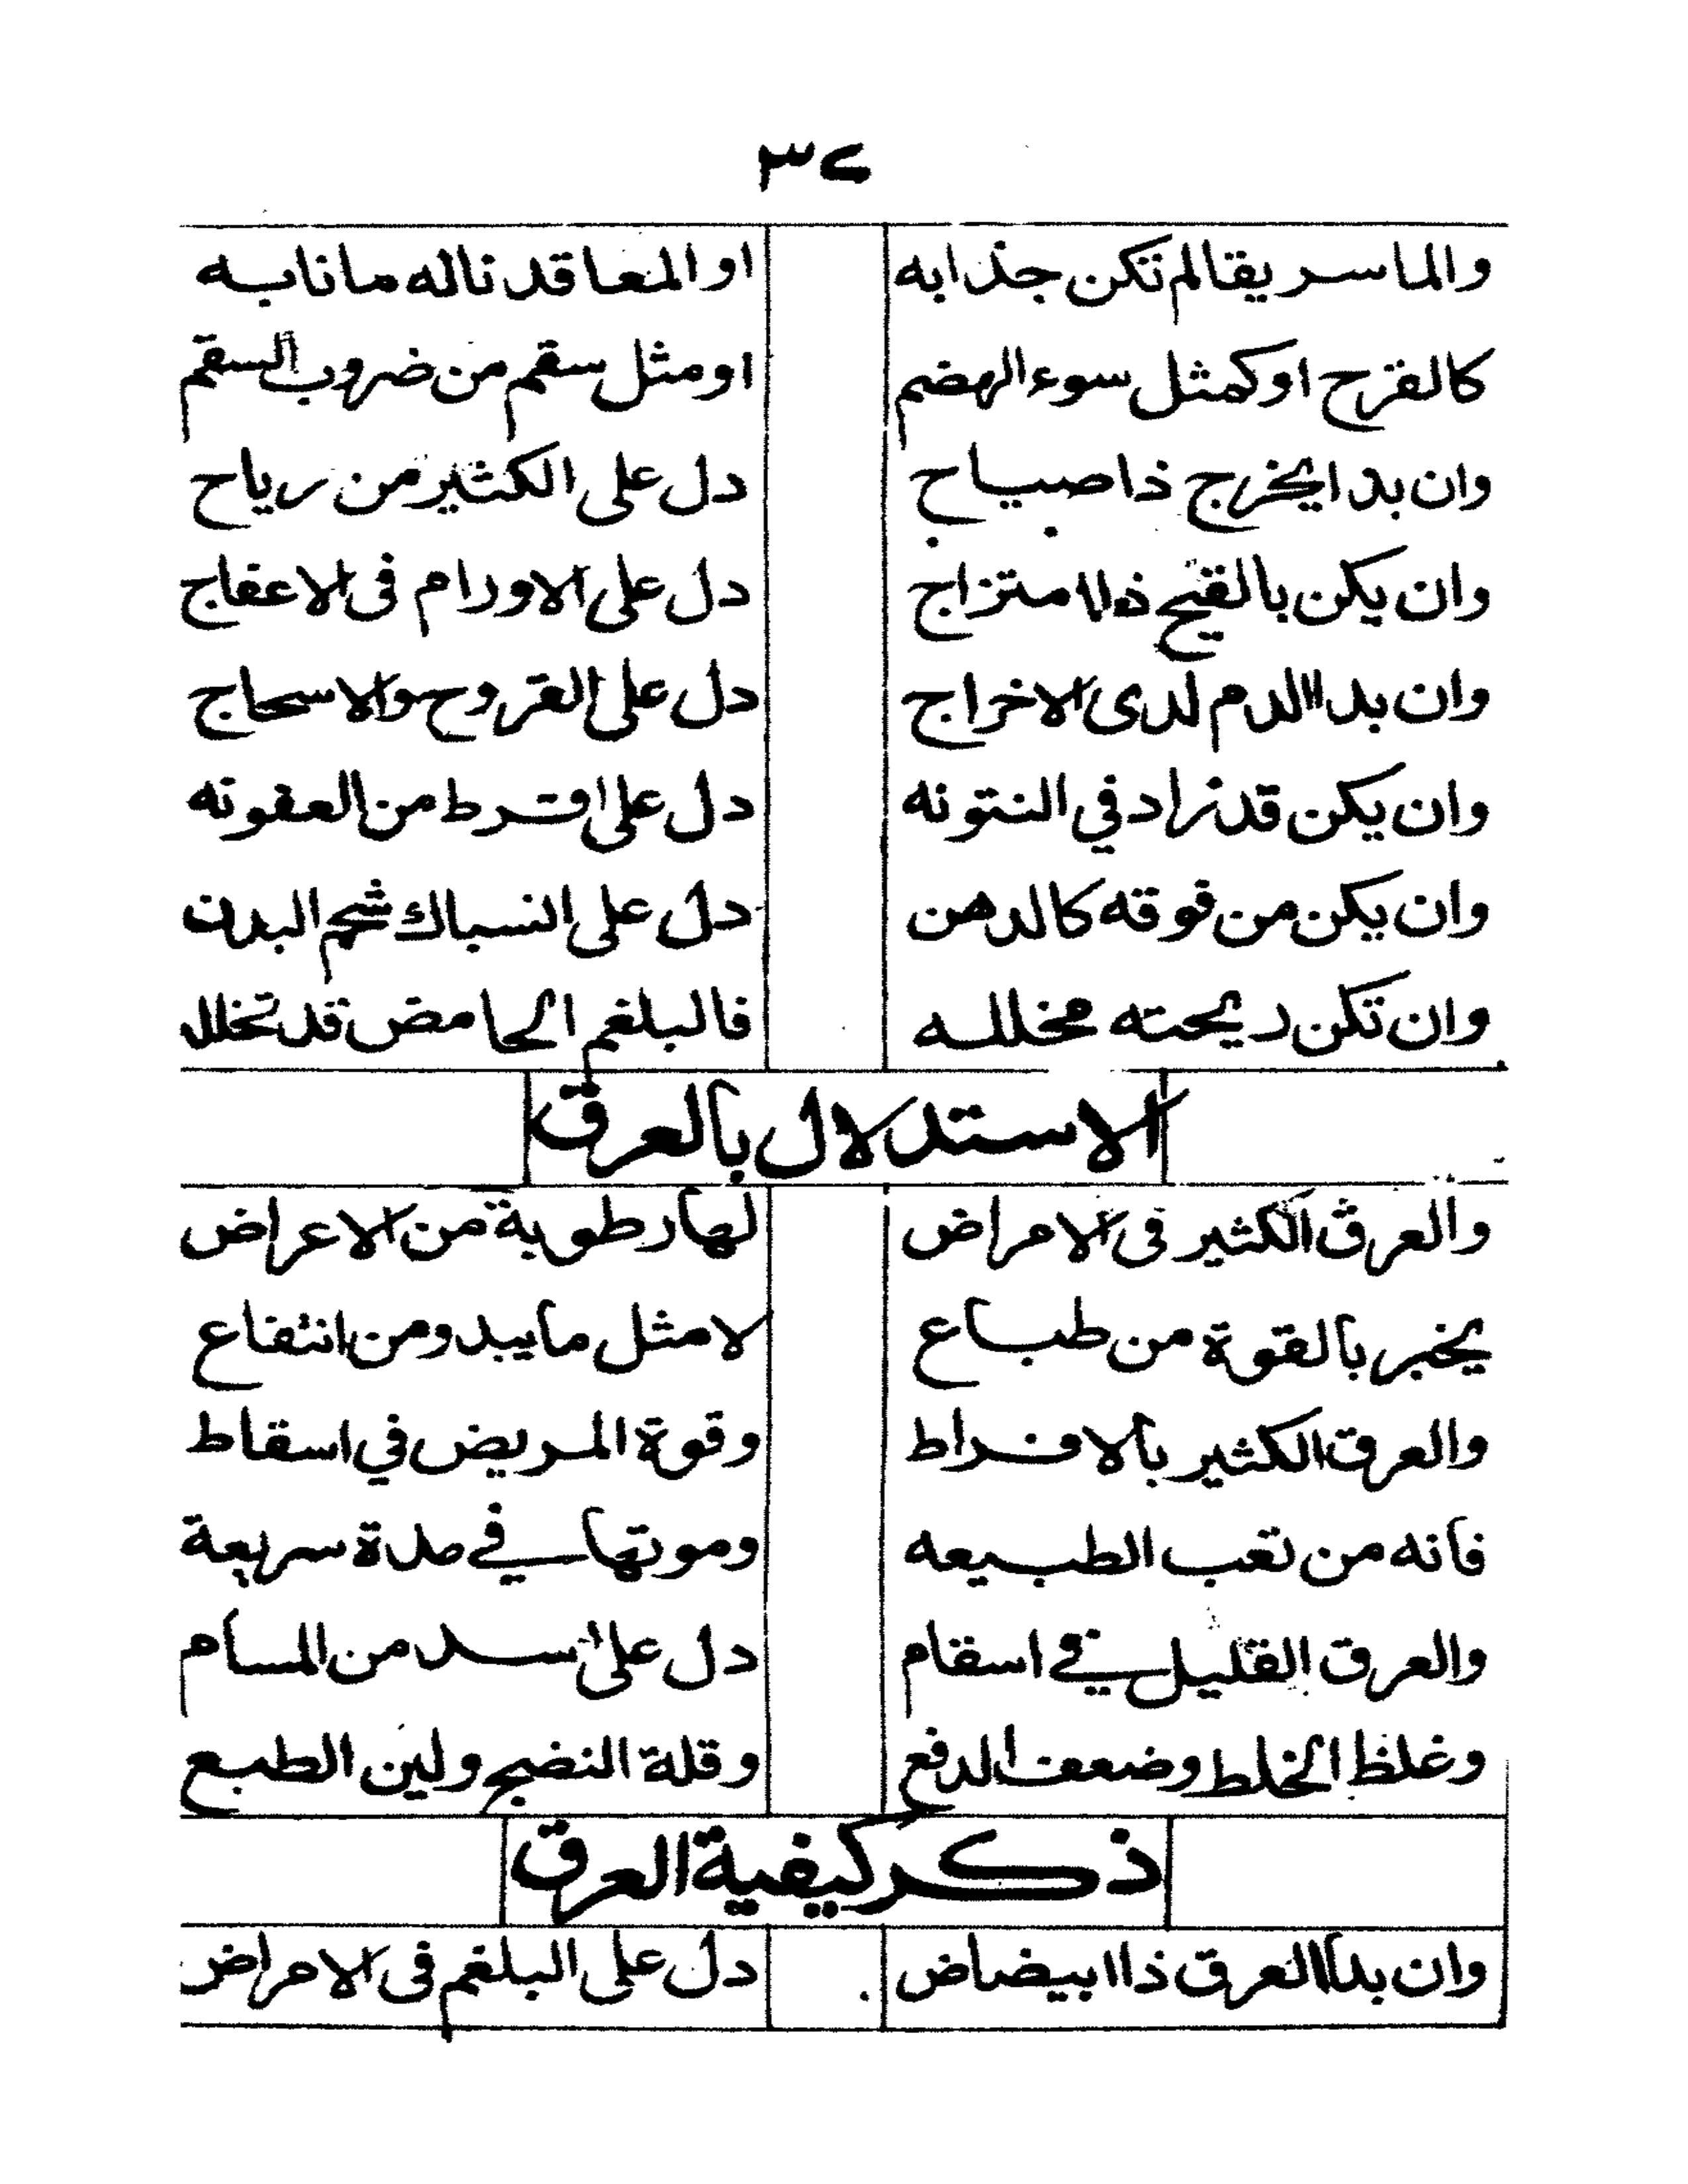 ٣٢
والماسريقا لم تكن جذابه او المعا قد ناله ما نابه
كالقرح او كمثل سوء الهضم او مثل سقم من ضروب السقم
وان بدا يخرج ذا صياح دل على الكثير من رياح
وان يكن بالقيح ذا امتزاج دل على الاورام فى الاعفاج
وان بدا الدم لدى الاخراج دل على القروح والاسحاج
وان يكن قد زاد في النتونه دل على افرط من العفونه
وان يكن من فوقه كالدهن دل على انسباك شحم البدن
وان تكن ريحته مخلله فالبلغم الحامض قد تخلله
الاستدلال بالعرق
والعرق الكثير فى الامراض لها رطوبة من الاعراض
يخبر بالقوة من طباع لا مثل ما يبدو من انتفاع
والعرق الكثير بالافراط وقوة المريض في اسقاط
فانه من تعب الطبيعه وموتها في مدة سريعة
والعرق القليل في اسقام دل على سد من المسام
وغلظ الخلط وضعف الدفع وقلة النضج ولين الطبع
ذكر كيفية العرق
وان بدا العرق ذا ابيضاض دل على البلغم فى الامراض